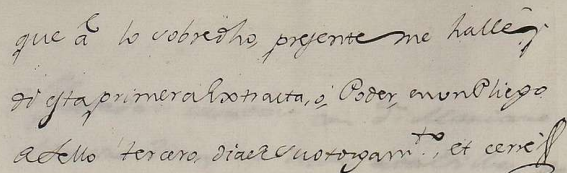 que â lo sobredho, presente me hallê, y
dî esta primera Extracta, ô Poder, en un Pliego
de sello tercero dia de su otorgam.to, et cerrê